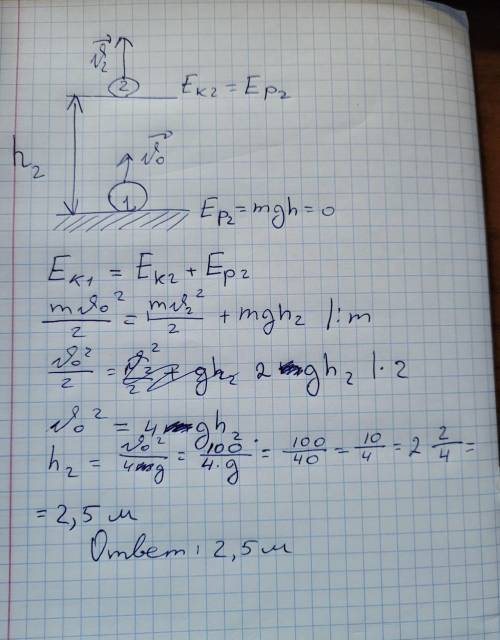 v⃗₂
2
Eк₂ = Ep₂
h₂
v⃗₀
1
Ep₂ = mgh = 0
Eк₁ = Eк₂ + Ep₂
mv₀²/2 = mv₂²/2 + mgh₂ |:m
v₀²/2 = v₂²/2 + gh₂ 2gh₂ |·2
v₀² = 4gh₂
h₂ = v₀²/4g = 100/4·g = 100/40 = 10/4 = 2 2/4 =
= 2,5 м
Ответ: 2,5 м